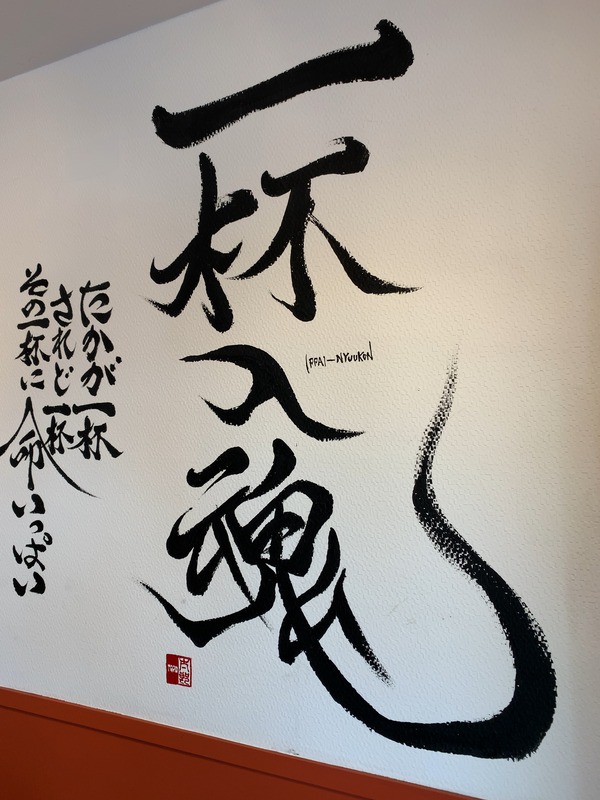 一杯入魂
IPPAI-NYUUKON
たかが一杯
されど一杯
その一杯に
命いっぱい